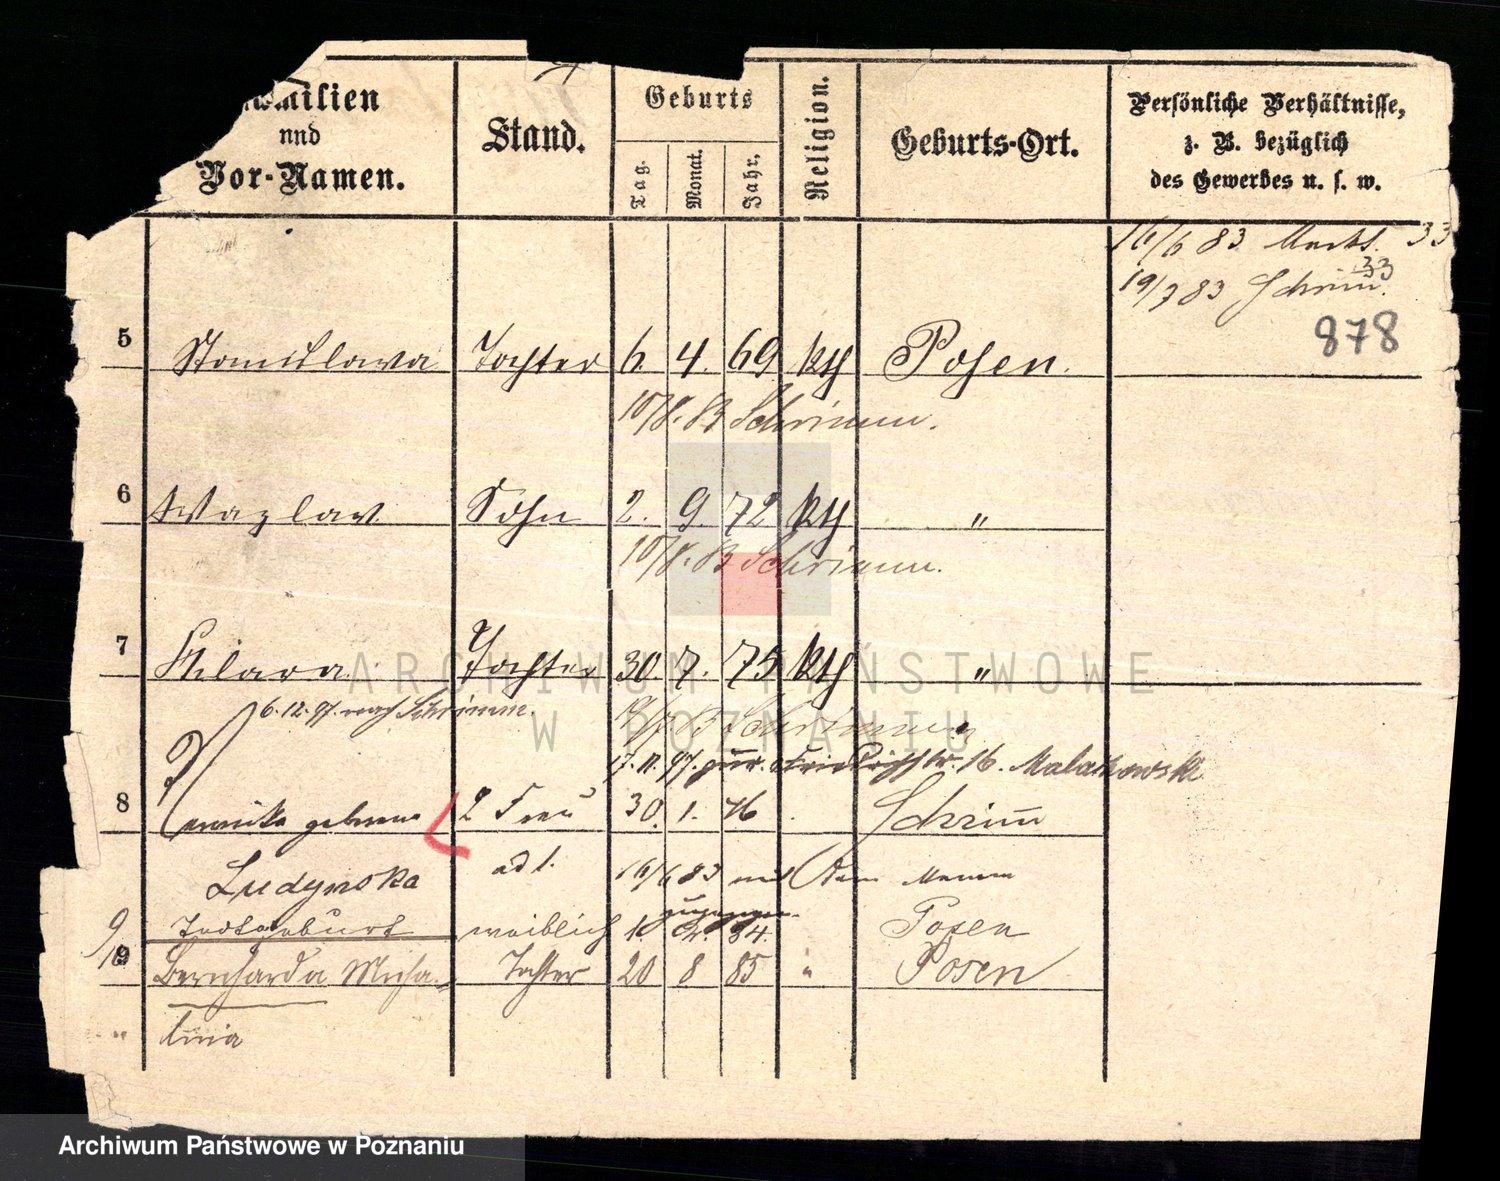 Familien
und
Vor-Namen.
Stand.
Geburts
Tag.
Monat.
Jahr.
Religion.
Geburts-Ort.
Persönliche Verhältnisse,
z. B. bezüglich
des Gewerbes u. s. w.
16/6 83 Markt. 33
33
19/7 83 Schrim.
878
5 Stanislawa Tochter 6. 4. 69 kth Posen.
10/8. 83 Schrimm.
6 Wazlav Sohn 2. 9 72 kth "
10/8. 83 Schrimm.
7 Hilara Tochter 30. 7. 75 kth "
6.12.97. nach Schrimm. Schrimm
17. 11. 97. zur. Friedrichstr. 16. Malakowski
8 geborene 2 Frau 30. 1. 76 Schrim̄
Ludynska ad 1. 16/6 83 mit dem Manne
zugezogen
9 Todtgeburt weiblich 1. 84. Posen
10 Bernharda Micha- Tochter 20 8 85 " Posen
lina
ARCHIWUM PAŃSTWOWE
W POZNANIU
Archiwum Państwowe w Poznaniu